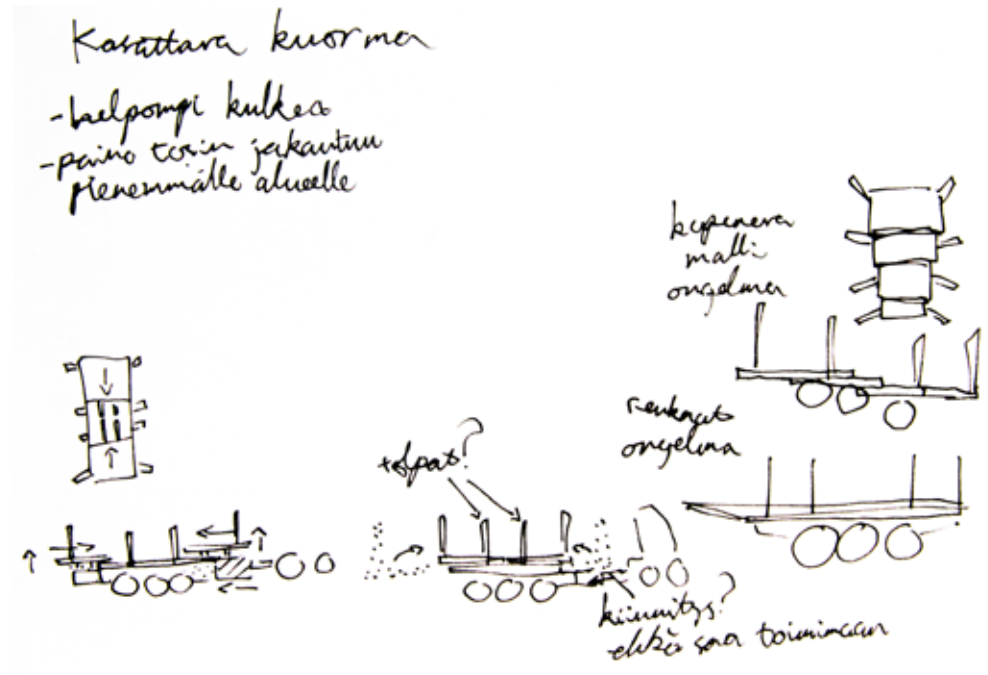 Kasattava kuorma
-helpompi kulkea
-paino tosin jakautuu
pienemmälle alueelle
kapeneva
malli
ongelma
renkaat
ongelma
tolpat?
kiinnitys?
ehkä saa toimimaan